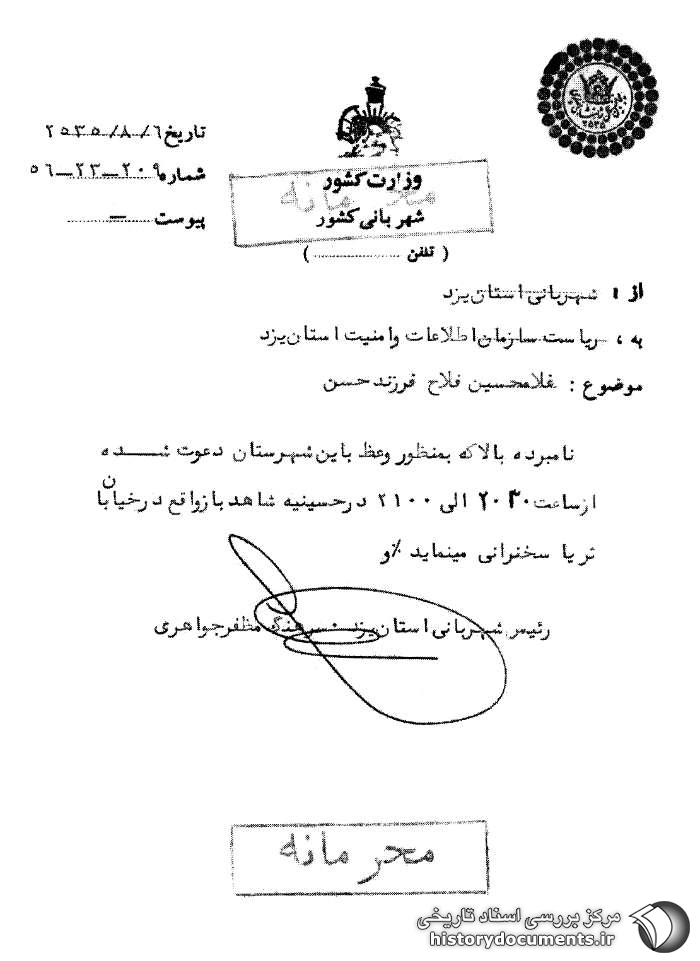 تاریخ ۲۵۳۵/۸/٦
شماره ۲۰۹-۲۳-۵٦
پیوست —
وزارت کشور
محرمانه
شهربانی کشور
( تلفن .................... )
از : شهربانی استان یزد
به : ریاست سازمان اطلاعات وامنیت استان یزد
موضوع : غلامحسین فلاح فرزند حسن
نامبرده بالاکه بمنظور وعظ باین شهرستان دعوت شده
ازساعت ۲۰۳۰ الی ۲۱۰۰ درحسینیه شاهدبازواقع درخیابان
ثریا سخنرانی مینماید ٪و
رئیس شهربانی استان یزد . سرهنگ مظفرجواهری
محرمانه
مرکز بررسی اسناد تاریخی
historydocuments.ir